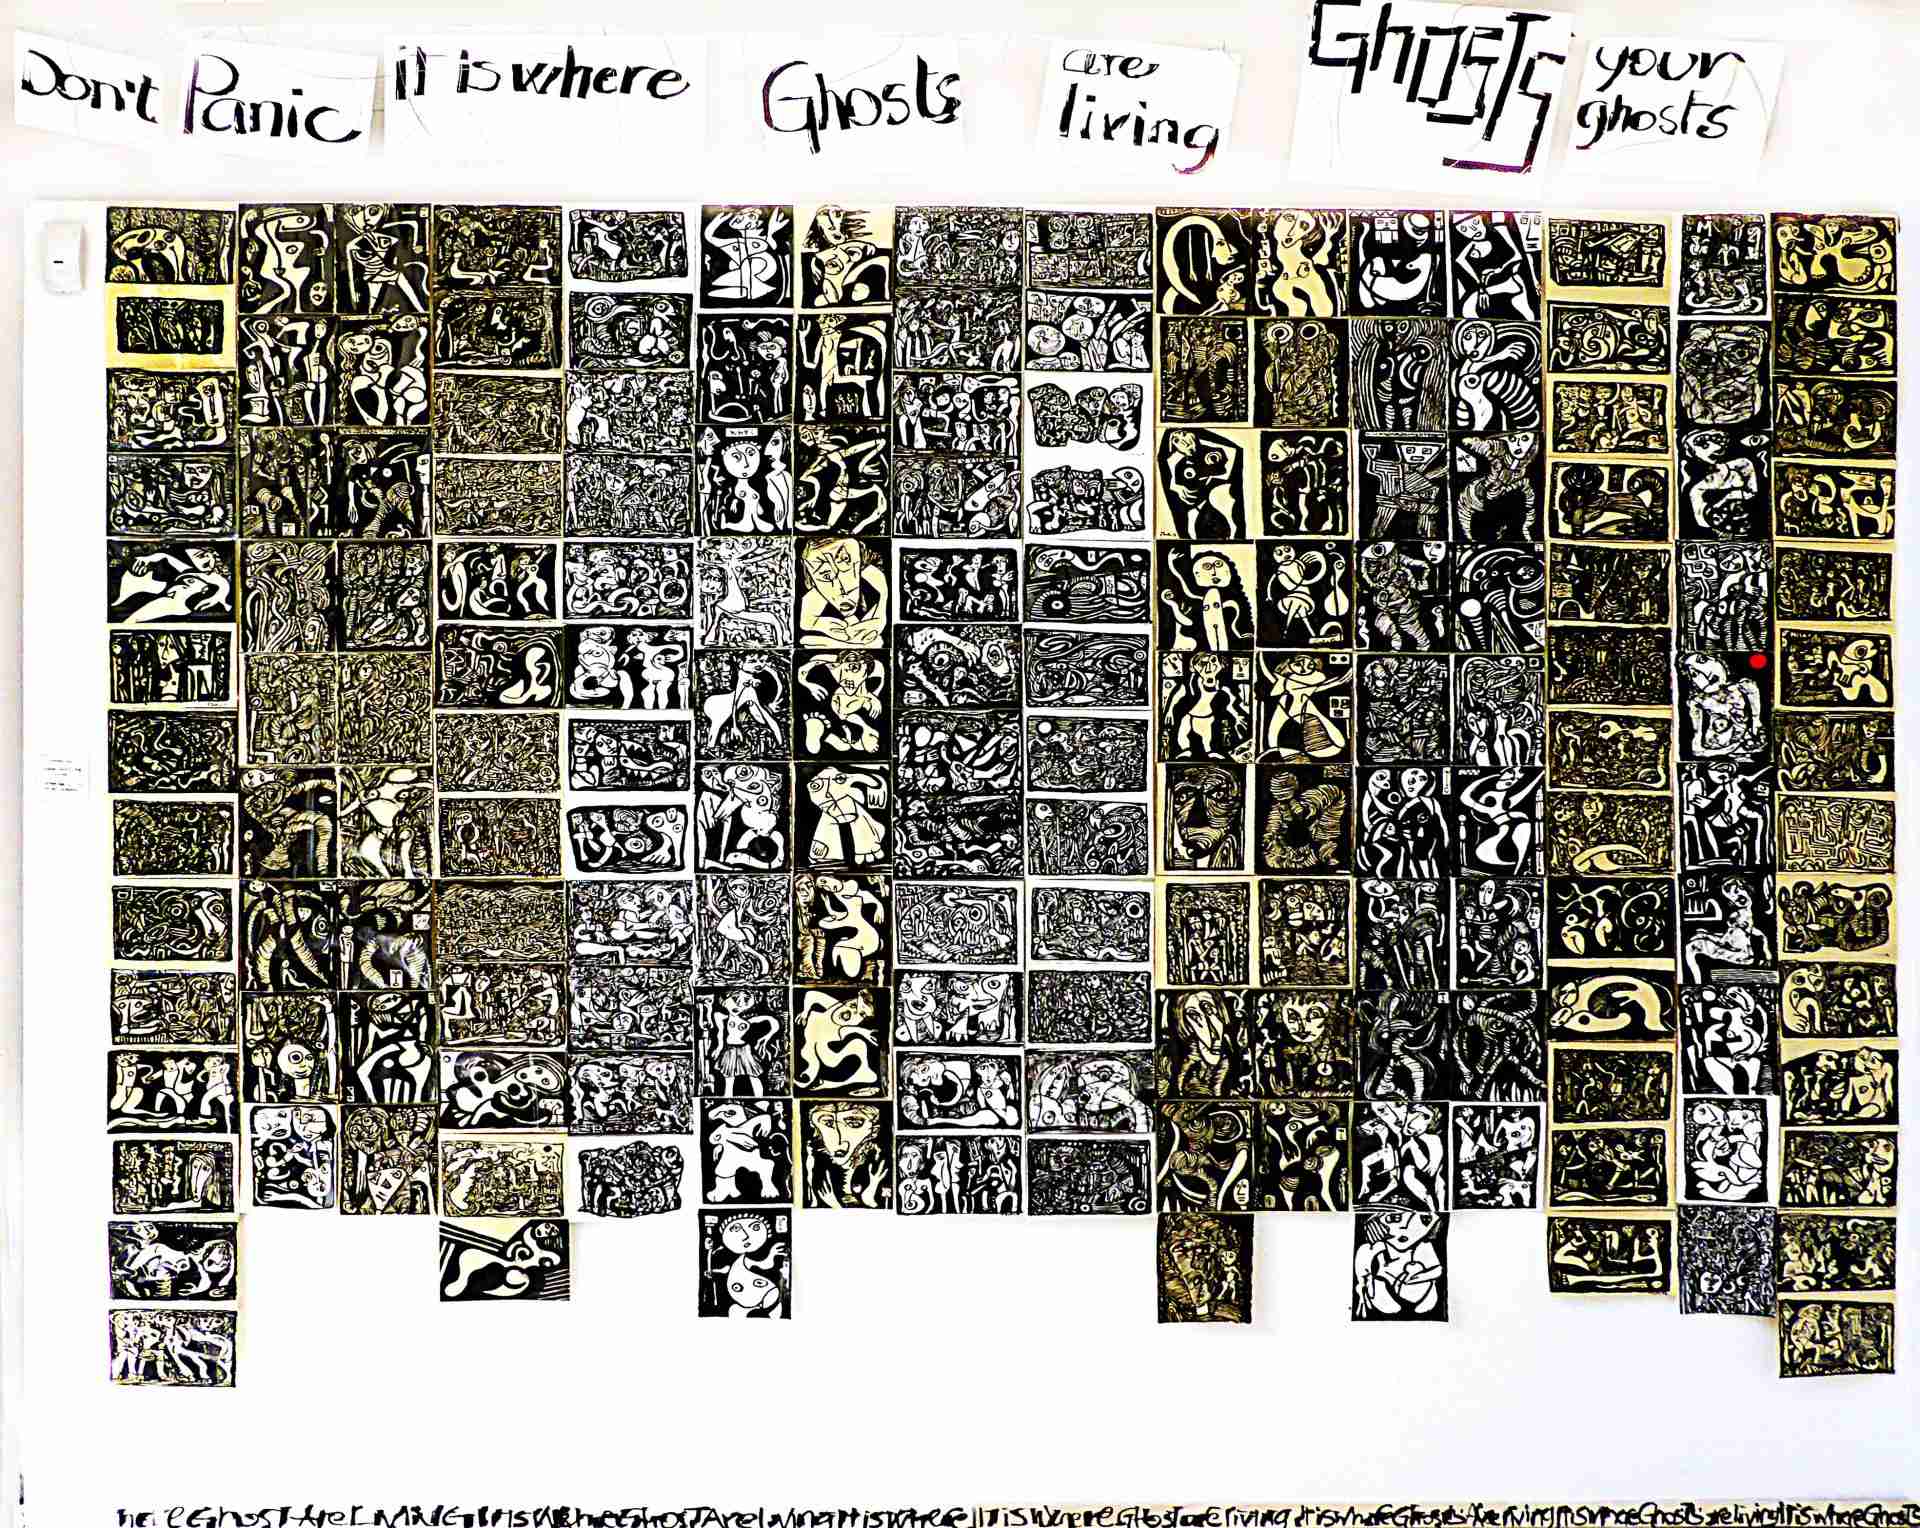 Don't Panic it is where Ghosts are living Ghosts your ghosts
Ghost Are LiViNG It is Where Ghost Are living It is where It is Where Ghost are living it is where Ghosts Are living It is where Ghosts are living It is where Ghosts